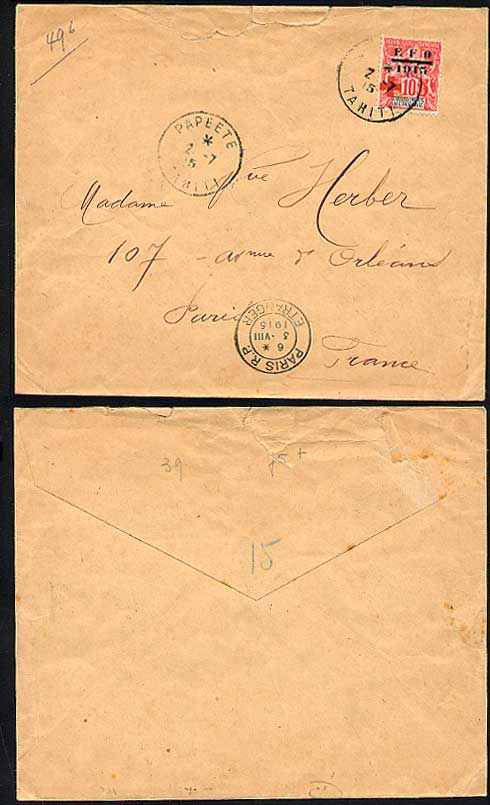 49 b
E F O
1915
2 * 7
15
10
TAHITI
PAPEETE
*
2 7
15
TAHITI
Madame Vve Herber
107 - avenue d'Orléans
Paris
France
PARIS R.P.
6 *
3 -VIII
1915
ETRANGER
39
15